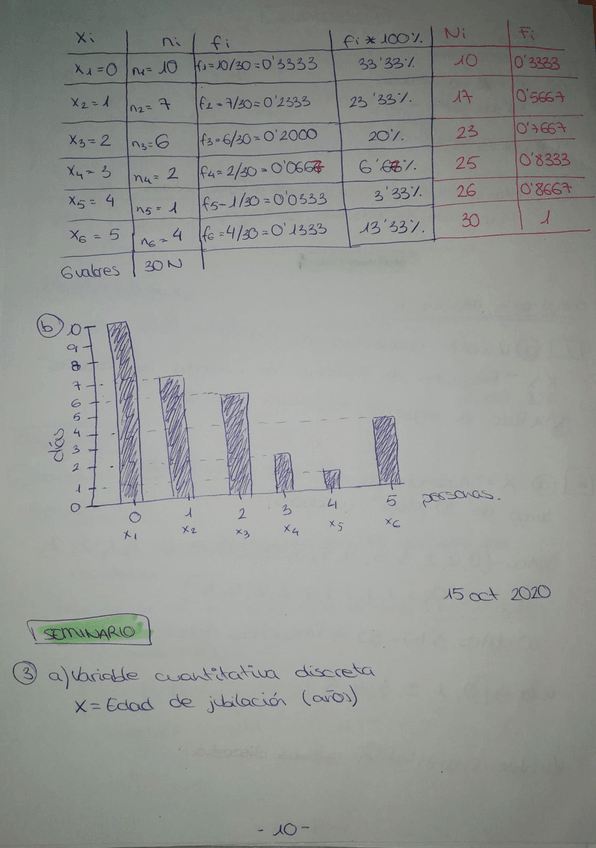 xi ni fi fi*100% Ni Fi
x1=0 n1=10 f1=10/30=0'3333 33'33% 10 0'3333
x2=1 n2=7 f2=7/30=0'2333 23'33% 17 0'5667
x3=2 n3=6 f3=6/30=0'2000 20% 23 0'7667
x4=3 n4=2 f4=2/30=0'0667 6'67% 25 0'8333
x5=4 n5=1 f5=1/30=0'0333 3'33% 26 0'8667
x6=5 n6=4 f6=4/30=0'1333 13'33% 30 1
6 valores 30 N
b
10
9
8
7
6
5
4
3
2
1
0
días
0 1 2 3 4 5 personas.
x1 x2 x3 x4 x5 x6
15 oct 2020
SEMINARIO
3 a) Variable cuantitativa discreta
X = Edad de jubilación (años)
-10-